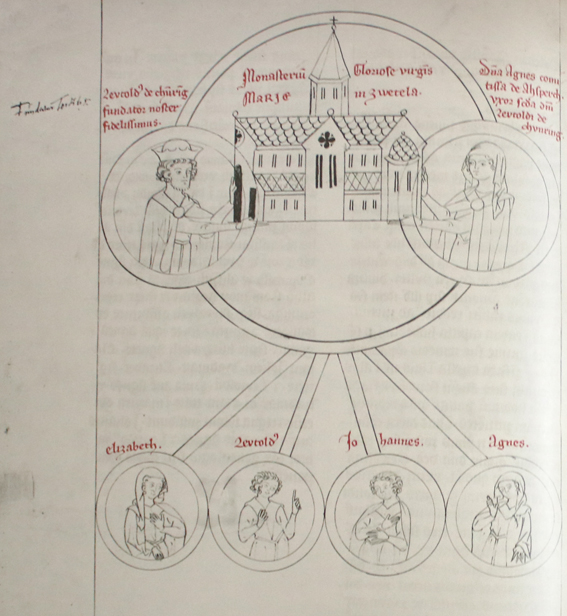 Leutold' de chu̅rig̅
fundator noster
fidelissimus.
Monasteriu̅ Gloriose virgis̅
MARJE in zwetela.
Dn̅a Agnes comi
tissa de Ahsperch.
vxor scd̅a dn̅i
Leutoldi de
chvnring.
elizabeth.
Leutold'
Jo hannes.
Agnes.